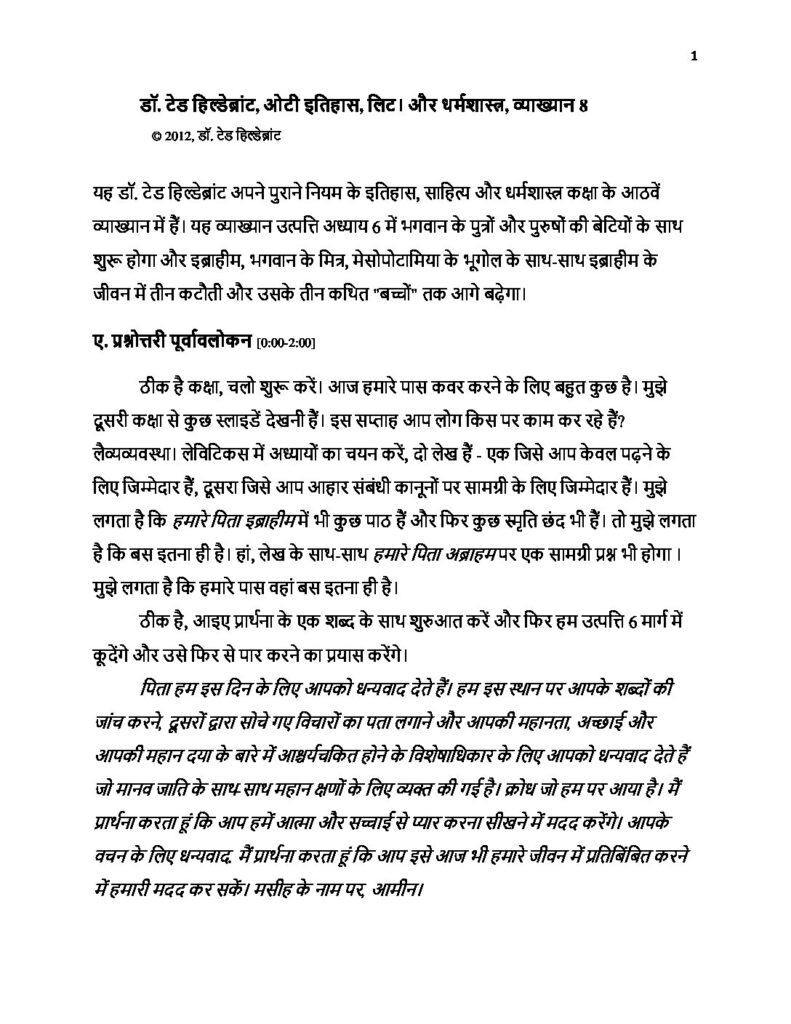 1
डॉ. टेड हिल्डेब्रांट, ओटी इतिहास, लिट। और धर्मशास्त्र, व्याख्यान 8
© 2012, डॉ. टेड हिल्डेब्रांट
यह डॉ. टेड हिल्डेब्रांट अपने पुराने नियम के इतिहास, साहित्य और धर्मशास्त्र कक्षा के आठवें
व्याख्यान में हैं। यह व्याख्यान उत्पत्ति अध्याय 6 में भगवान के पुत्रों और पुरुषों की बेटियों के साथ
शुरू होगा और इब्राहीम, भगवान के मित्र, मेसोपोटामिया के भूगोल के साथ-साथ इब्राहीम के
जीवन में तीन कटौती और उसके तीन कथित "बच्चों" तक आगे बढ़ेगा।
ए. प्रश्नोत्तरी पूर्वावलोकन [0:00-2:00]
ठीक है कक्षा, चलो शुरू करें। आज हमारे पास कवर करने के लिए बहुत कुछ है। मुझे
दूसरी कक्षा से कुछ स्लाइडें देखनी हैं। इस सप्ताह आप लोग किस पर काम कर रहे हैं?
लैव्यव्यवस्था। लेविटिकस में अध्यायों का चयन करें, दो लेख हैं - एक जिसे आप केवल पढ़ने के
लिए जिम्मेदार हैं, दूसरा जिसे आप आहार संबंधी कानूनों पर सामग्री के लिए जिम्मेदार हैं। मुझे
लगता है कि हमारे पिता इब्राहीम में भी कुछ पाठ हैं और फिर कुछ स्मृति छंद भी हैं। तो मुझे लगता
है कि बस इतना ही है। हां, लेख के साथ-साथ हमारे पिता अब्राहम पर एक सामग्री प्रश्न भी होगा ।
मुझे लगता है कि हमारे पास वहां बस इतना ही है।
ठीक है, आइए प्रार्थना के एक शब्द के साथ शुरुआत करें और फिर हम उत्पत्ति 6 मार्ग में
कूदेंगे और उसे फिर से पार करने का प्रयास करेंगे।
पिता हम इस दिन के लिए आपको धन्यवाद देते हैं। हम इस स्थान पर आपके शब्दों की
जांच करने, दूसरों द्वारा सोचे गए विचारों का पता लगाने और आपकी महानता, अच्छाई और
आपकी महान दया के बारे में आश्चर्यचकित होने के विशेषाधिकार के लिए आपको धन्यवाद देते हैं
जो मानव जाति के साथ-साथ महान क्षणों के लिए व्यक्त की गई है। क्रोध जो हम पर आया है। मैं
प्रार्थना करता हूं कि आप हमें आत्मा और सच्चाई से प्यार करना सीखने में मदद करेंगे। आपके
वचन के लिए धन्यवाद. मैं प्रार्थना करता हूं कि आप इसे आज भी हमारे जीवन में प्रतिबिंबित करने
में हमारी मदद कर सकें। मसीह के नाम पर, आमीन।